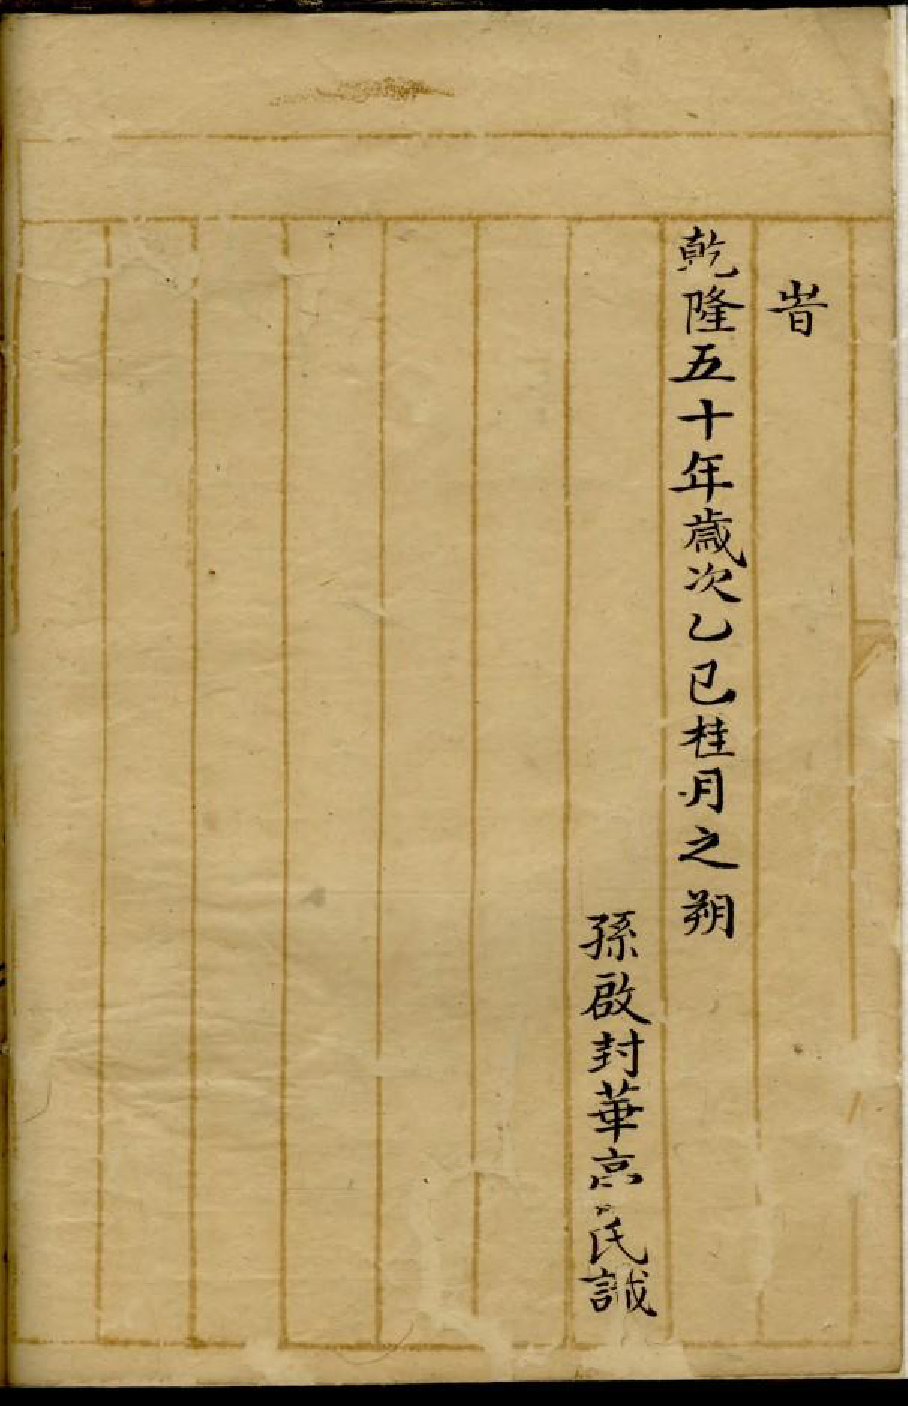 旹
乾隆五十年歲次乙巳桂月之朔
孫啟封華氏